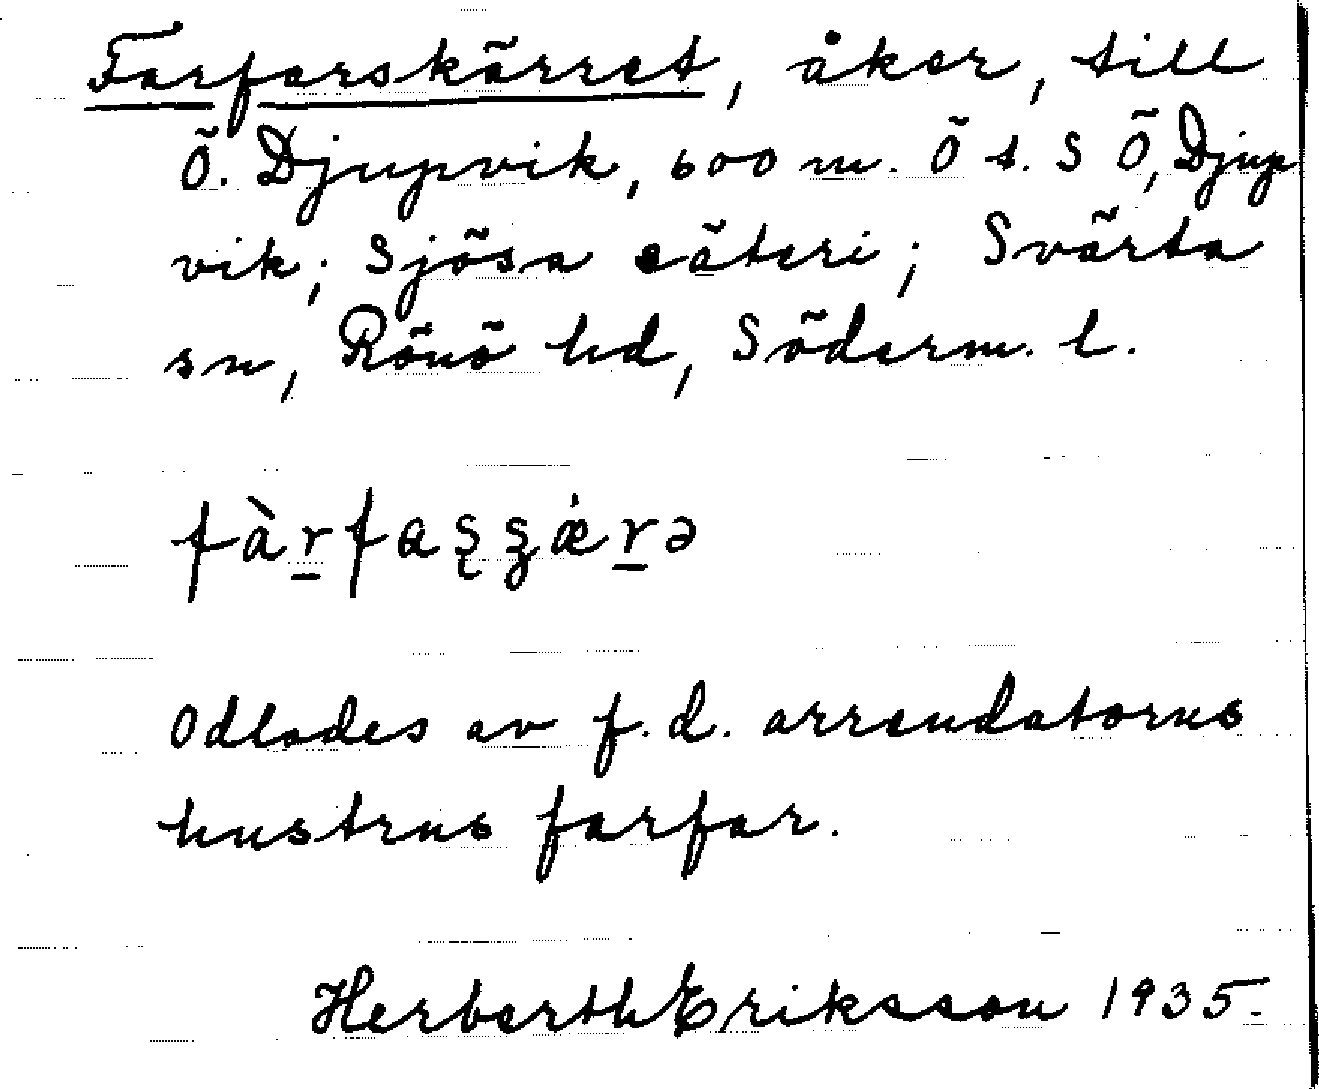 Farfarskärret, åker, till
Ö. Djupvik, 600 m. Ö t. S Ö, Djup
vik; Sjösa säteri; Svärta
sn, Rönö hd, Söderm. l.
fàr̲faʂʂǽr̲ə
Odlades av f.d. arrendatorns
hustrus farfar.
Herberth Eriksson 1935.